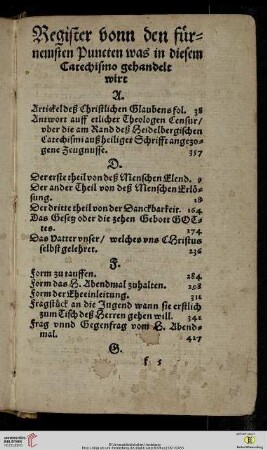 Register vonn den für-
nemsten Puncten was in diesem
Catechismo gehandelt
wirt
A.
Artickel deß Christlichen Glaubens fol. 38
Antwort auff etlicher Theologen Censur/
vber die am Rand deß Heidelbergischen
Catechismi auß heiliger Schrifft angezo-
gene Zeugnusse. 357
D.
Der erste theil von deß Menschen Elend. 9
Der ander Theil von deß Menschen Erlö-
sung. 18
Der dritte theil von der Danckbarkeit. 164
Das Gesetz oder die zehen Gebott GOT-
tes. 174
Das Vatter vnser/ welches vns Christus
selbst gelehret. 236
F.
Form zu tauffen. 284
Form das H. Abendmal zuhalten. 298
Form der Eheeinleitung. 311
Fragstück an die Jugend wann sie erstlich
zum Tisch deß Herren gehen will. 342
Frag vnnd Gegenfrag vom H. Abend-
mal. 427
G.